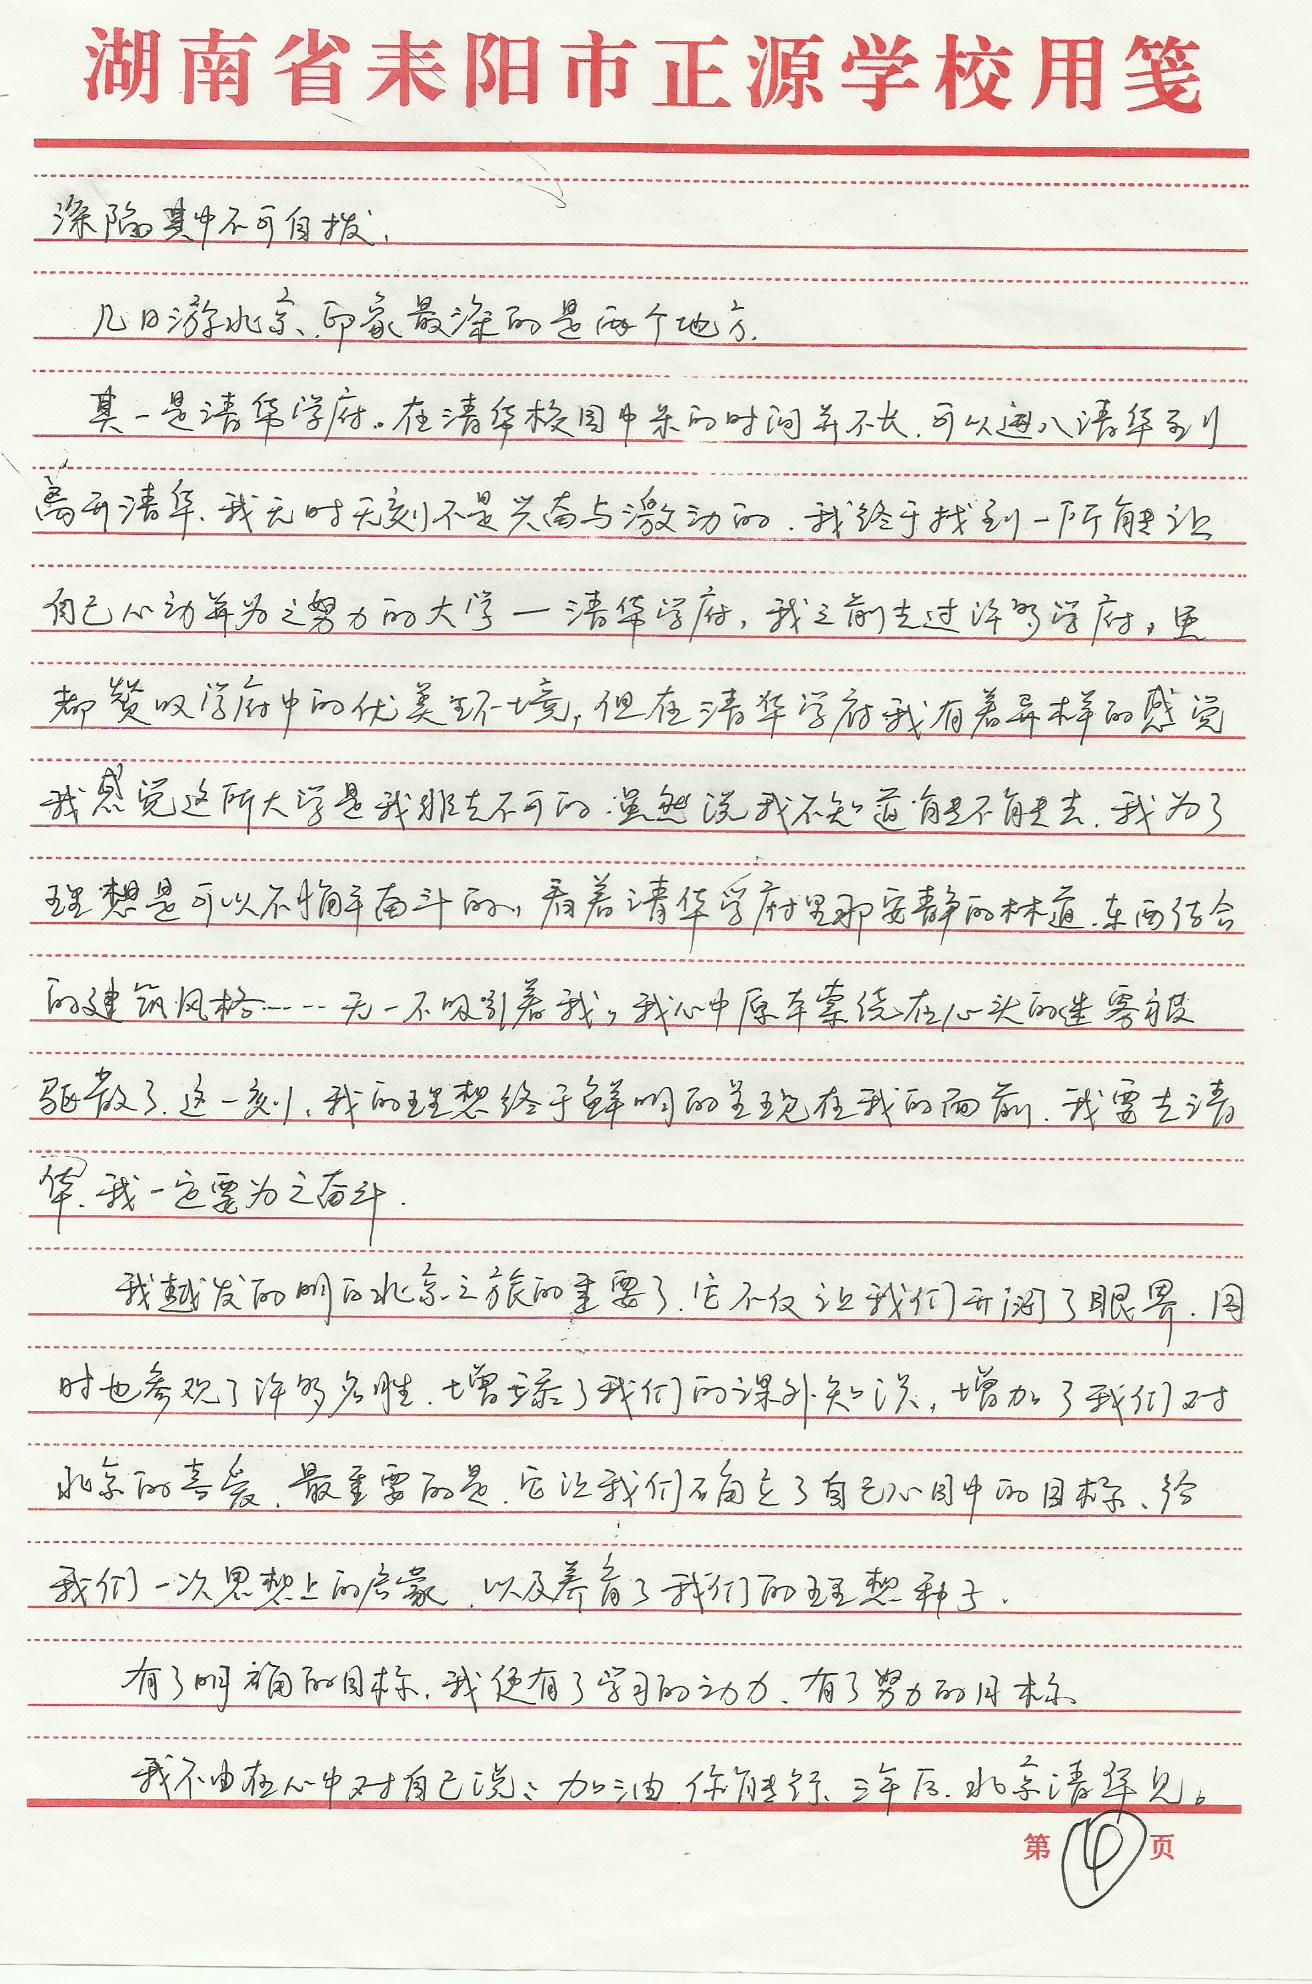 湖南省耒阳市正源学校用笺
深陷其中不可自拔.
几日游北京、印象最深的是两个地方.
其一是清华学府。在清华校园中呆的时间并不长.可以进入清华到
离开清华.我无时无刻不是兴奋与激动的.我终于找到一所能让
自己心动并为之努力的大学—清华学府,我之前去过许多学府,虽
都赞叹学府中的优美环境,但在清华学府我有着异样的感觉
我感觉这所大学是我非去不可的.虽然说我不知道能不能去.我为了
理想是可以不懈奋斗的,看着清华学府里那安静的林道.东西结合
的建筑风格……无一不吸引着我,我心中原本萦绕在心头的迷雾被
驱散了.这一刻,我的理想终于鲜明的呈现在我的面前.我要去清
华.我一定要为之奋斗.
我越发的明白北京之旅的重要了.它不仅让我们开阔了眼界.同
时也参观了许多名胜.增添了我们的课外知识,增加了我们对
北京的喜爱.最重要的是.它让我们确立了自己心目中的目标、给
我们一次思想上的启蒙.以及养育了我们的理想种子.
有了明确的目标.我便有了学习的动力.有了努力的目标.
我不由在心中对自己说:加油.你能行.三年后.北京清华见。
第4页